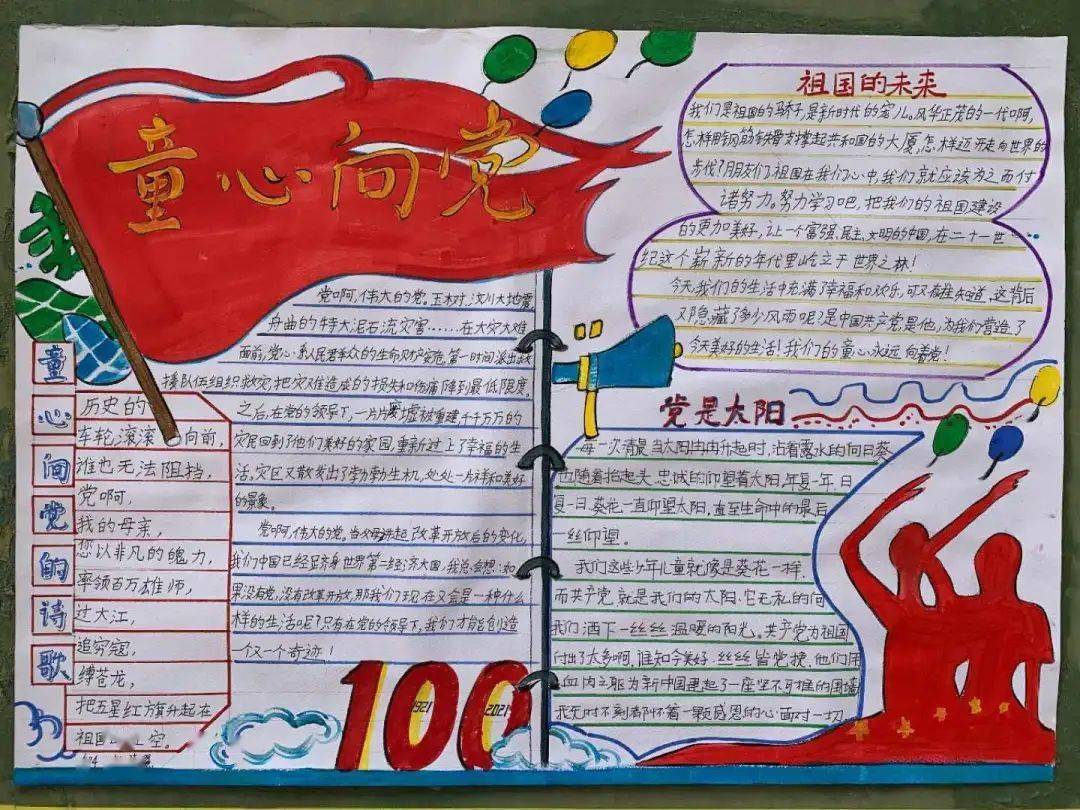 童心向党
党啊,伟大的党。玉树、汶川大地震
舟曲的特大泥石流灾害……在大灾大难
面前,党心系人民群众的生命财产安危,第一时间派出救
援队伍组织救灾,把灾难造成的损失和伤痛降到最低限度,
之后,在党的领导下,一片片废墟被重建,千千万万的
灾民回到了他们美好的家园,重新过上了幸福的生
活,灾区又散发出了勃勃生机,处处一片祥和美好
的景象。
党啊,伟大的党。当父母讲起改革开放后的变化,
我们中国已经跻身世界第二经济大国,我总会想:如
果没有党,没有改革开放,那我们现在又会是一种什么
样的生活呢?只有在党的领导下,我们才能创造
一仅一个奇迹!
童心向党的诗歌
历史的
车轮滚滚向前,
谁也无法阻挡,
党啊,
我的母亲,
您以非凡的魄力,
率领百万雄师,
过大江,
追穷寇,
缚苍龙,
把五星红旗升起在
祖国 空。
100
1921
2021
祖国的未来
我们是祖国的骄子,是新时代的宠儿。风华正茂的一代啊,
怎样用钢筋铁骨支撑起共和国的大厦,怎样迈开走向世界的
步伐?朋友们,祖国在我们心中,我们就应该为之而付
诸努力。努力学习吧,把我们的祖国建设
的更加美好,让一个富强、民主、文明的中国,在二十一世
纪这个崭新的年代里屹立于世界之林!
今天,我们的生活中充满了幸福和欢乐,可又有谁知道,这背后
又隐藏了多少风雨呢?是中国共产党,是他,为我们营造了
今天美好的生活!我们的童心永远向着党!
党是太阳
每一次清晨当太阳冉冉升起时,沾着露水的向日葵
也随着抬起头,忠诚的仰望着太阳,年复一年,日
复一日,葵花一直仰望太阳,直至生命中的最后
一丝仰望。
我们这些少年儿童就像是葵花一样,
而共产党就是我们的太阳,它无私的向
我们洒下一丝丝温暖的阳光。共产党为祖国
付出了太多啊,谁知今美好,丝丝皆党挽,他们用
血肉之躯为新中国建起了一座坚不可摧的围墙
我无时不刻都怀着一颗感恩的心面对一切